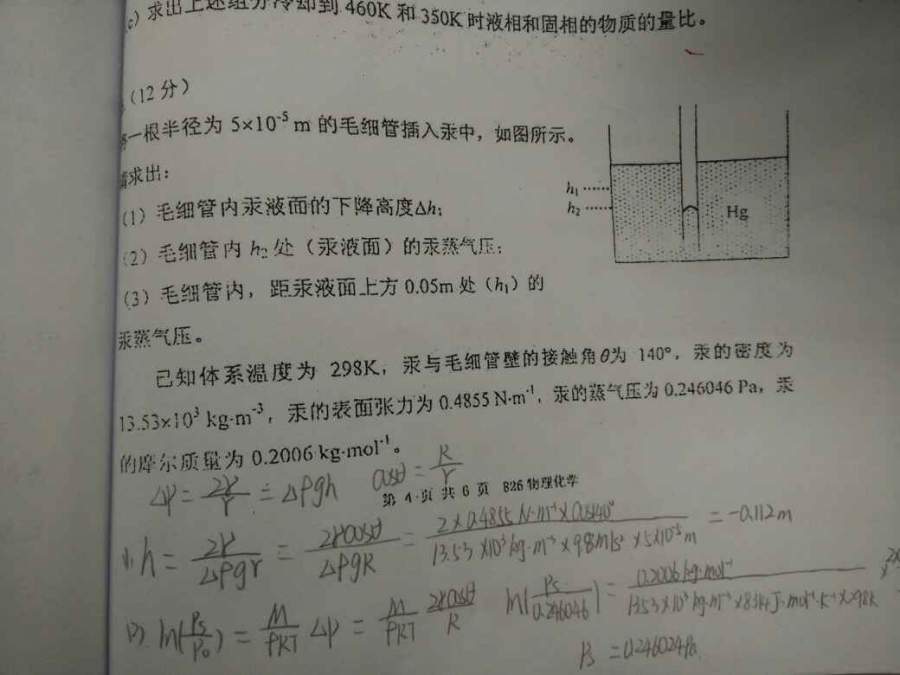 c) 求出上述组分冷却到 460K 和 350K 时液相和固相的物质的量比。
(12 分)
一根半径为 5×10⁻⁵ m 的毛细管插入汞中，如图所示。
请求出：
(1) 毛细管内汞液面的下降高度Δh；
(2) 毛细管内 h₂ 处（汞液面）的汞蒸气压；
(3) 毛细管内，距汞液面上方 0.05m 处（h₁）的
汞蒸气压。
h₁
h₂
Hg
已知体系温度为 298K，汞与毛细管壁的接触角θ为 140°，汞的密度为
13.53×10³ kg·m⁻³，汞的表面张力为 0.4855 N·m⁻¹，汞的蒸气压为 0.246046 Pa，汞
的摩尔质量为 0.2006 kg·mol⁻¹。
Δp = 2γ/r = Δρgh cosθ = R/r
第 4 页 共 6 页 826 物理化学
(1) h = 2γ/Δρgr = 2γcosθ/ΔρgR = 2×0.4855 N·m⁻¹×cos140°/13.53×10³ kg·m⁻³×9.8m/s²×5×10⁻⁵m = -0.112m
(2) ln(Ps/P₀) = M/ρRT Δp = M/ρRT 2γcosθ/R ln(Ps/0.246046) = 0.2006 kg·mol⁻¹/13.53×10³ kg·m⁻³×8.314 J·mol⁻¹·K⁻¹×298K ×
Ps = 0.246024Pa